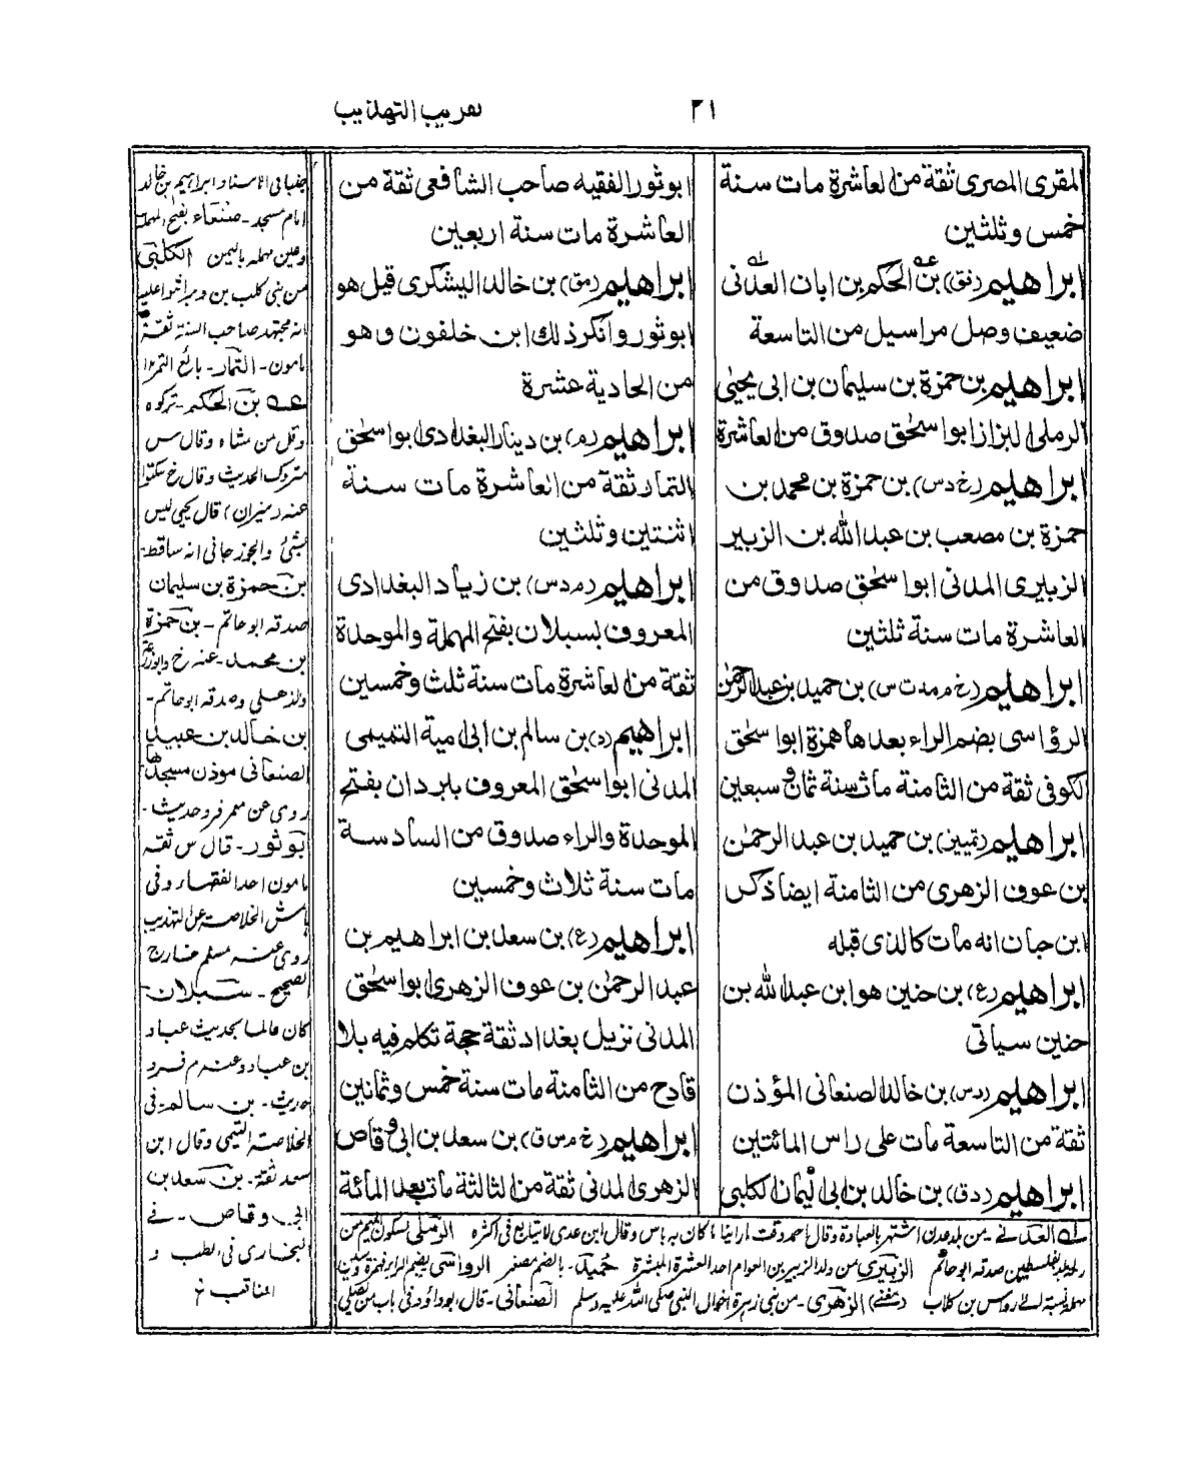 ٢١
تقريب التهذيب
المقرى المصرى ثقة من العاشرة مات سنة
خمس وثلثين
ابراهيم (فق) بن الحكم بن ابان العدنى
ضعيف وصل مراسيل من التاسعة
ابراهيم بن حمزة بن سليمان بن ابى يحيى
الرملى البزاز ابو اسحٰق صدوق من العاشرة
ابراهيم (خ د س) بن حمزة بن محمد بن
حمزة بن مصعب بن عبد الله بن الزبير
الزبيرى المدنى ابو اسحٰق صدوق من
العاشرة مات سنة ثلثين
ابراهيم (خ م مد ت س) بن حميد بن عبد الرحمٰن
الرؤاسى بضم الراء بعدها همزة ابو اسحٰق
الكوفى ثقة من الثامنة مات سنة ثمان وسبعين
ابراهيم (تمييز) بن حميد بن عبد الرحمٰن
بن عوف الزهرى من الثامنة ايضا ذكر
ابن حبان انه مات كالذى قبله
ابراهيم (ع) بن حنين هو ابن عبد الله بن
حنين سياتى
ابراهيم (د س) بن خالد الصنعانى المؤذن
ثقة من التاسعة مات على راس المائتين
ابراهيم (د ق) بن خالد بن ابى اليمان الكلبى
ابو ثور الفقيه صاحب الشافعى ثقة من
العاشرة مات سنة اربعين
ابراهيم (مق) بن خالد اليشكرى قيل هو
ابو ثور وانكر ذلك ابن خلفون وهو
من الحادية عشرة
ابراهيم (م) بن دينار البغدادى ابو اسحٰق
التمار ثقة من العاشرة مات سنة
اثنتين وثلثين
ابراهيم (م د س) بن زياد البغدادى
المعروف بسبلان بفتح المهملة والموحدة
ثقة من العاشرة مات سنة ثلث وخمسين
ابراهيم (د) بن سالم بن ابى امية التيمى
المدنى ابو اسحٰق المعروف ببردان بفتح
الموحدة والراء صدوق من السادسة
مات سنة ثلاث وخمسين
ابراهيم (ع) بن سعد بن ابراهيم بن
عبد الرحمٰن بن عوف الزهرى ابو اسحٰق
المدنى نزيل بغداد ثقة حجة تكلم فيه بلا
قادح من الثامنة مات سنة خمس وثمانين
ابراهيم (خ م س ق) بن سعد بن ابى وقاص
الزهرى المدنى ثقة من الثالثة مات بعد المائة
الاسناد ابراهيم بن خالد
امام مسجد - صنعاء بفتح المهملة
وعين مهمله باليمن الكلبى
من بنى كلب بن وبرة
انه مجتهد صاحب السنة ثقة
مامون - التمار - بائع التمر ١٢
عه بن الحكم - تركوه
وقل من مشاه وقال س
متروك الحديث وقال خ سكتوا
عنه (ميزان) قال يحيى ليس
بشئ والجوزجانى انه ساقط -
بن حمزة بن سليمان
صدقه ابو حاتم - بن حمزة
بن محمد - عنه خ وابو زرعة
والذهلى وصدقه ابو حاتم -
بن خالد بن عبيد
الصنعانى موذن مسجدها
روى عن معمر فرد حديث -
ابو ثور - قال س ثقه
مامون احد الفقهاء وفى
هامش الخلاصة عن التهذيب
روى عنه مسلم خارج
الصحيح - سبلان -
كان عالما بحديث عباد
بن عباد وعنه م فرد
حديث - بن سالم - فى
الخلاصة التيمى وقال ابن
سعد ثقة - بن سعد بن
ابى وقاص - له فى
البخارى فى الطب و
المناقب
له العدنى - من بلد عدن اشتهر بالعبادة وقال احمد وقت ما راينا ما كان به باس وقال ابن عدى لا يتابع فى اكثره الرملى لسكون الميم من
رملة بفلسطين صدقه ابو حاتم الزبيرى من ولد الزبير بن العوام احد العشرة المبشرة حميد - بالضم مصغر الرواسى بضم الراء
مهملة نسبة الى رواس بن كلاب (مغنى) الزهرى - من بنى زهرة اخوال النبى صلى الله عليه وسلم الصنعانى - قال ابو داؤد فى باب من يصلى